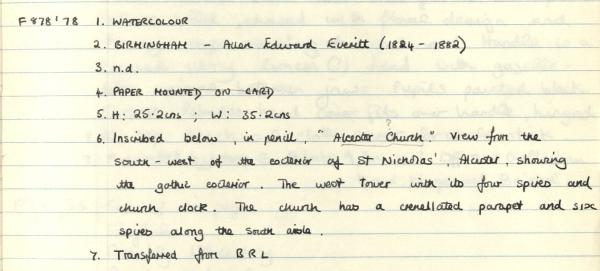 F878'78 1. WATERCOLOUR
2. BIRMINGHAM - Allen Edward Everitt (1824 - 1882)
3. n.d.
4. PAPER MOUNTED ON CARD
5. H: 25.2cms ; W: 35.2cms
?
6. Inscribed below, in pencil, "Alcester Church". View from the
south-west of the exterior of St Nicholas', Alcester, showing
the gothic exterior. The west tower with its four spires and
church clock. The church has a crenellated parapet and six
spires along the south aisle.
7. Transferred from BRL